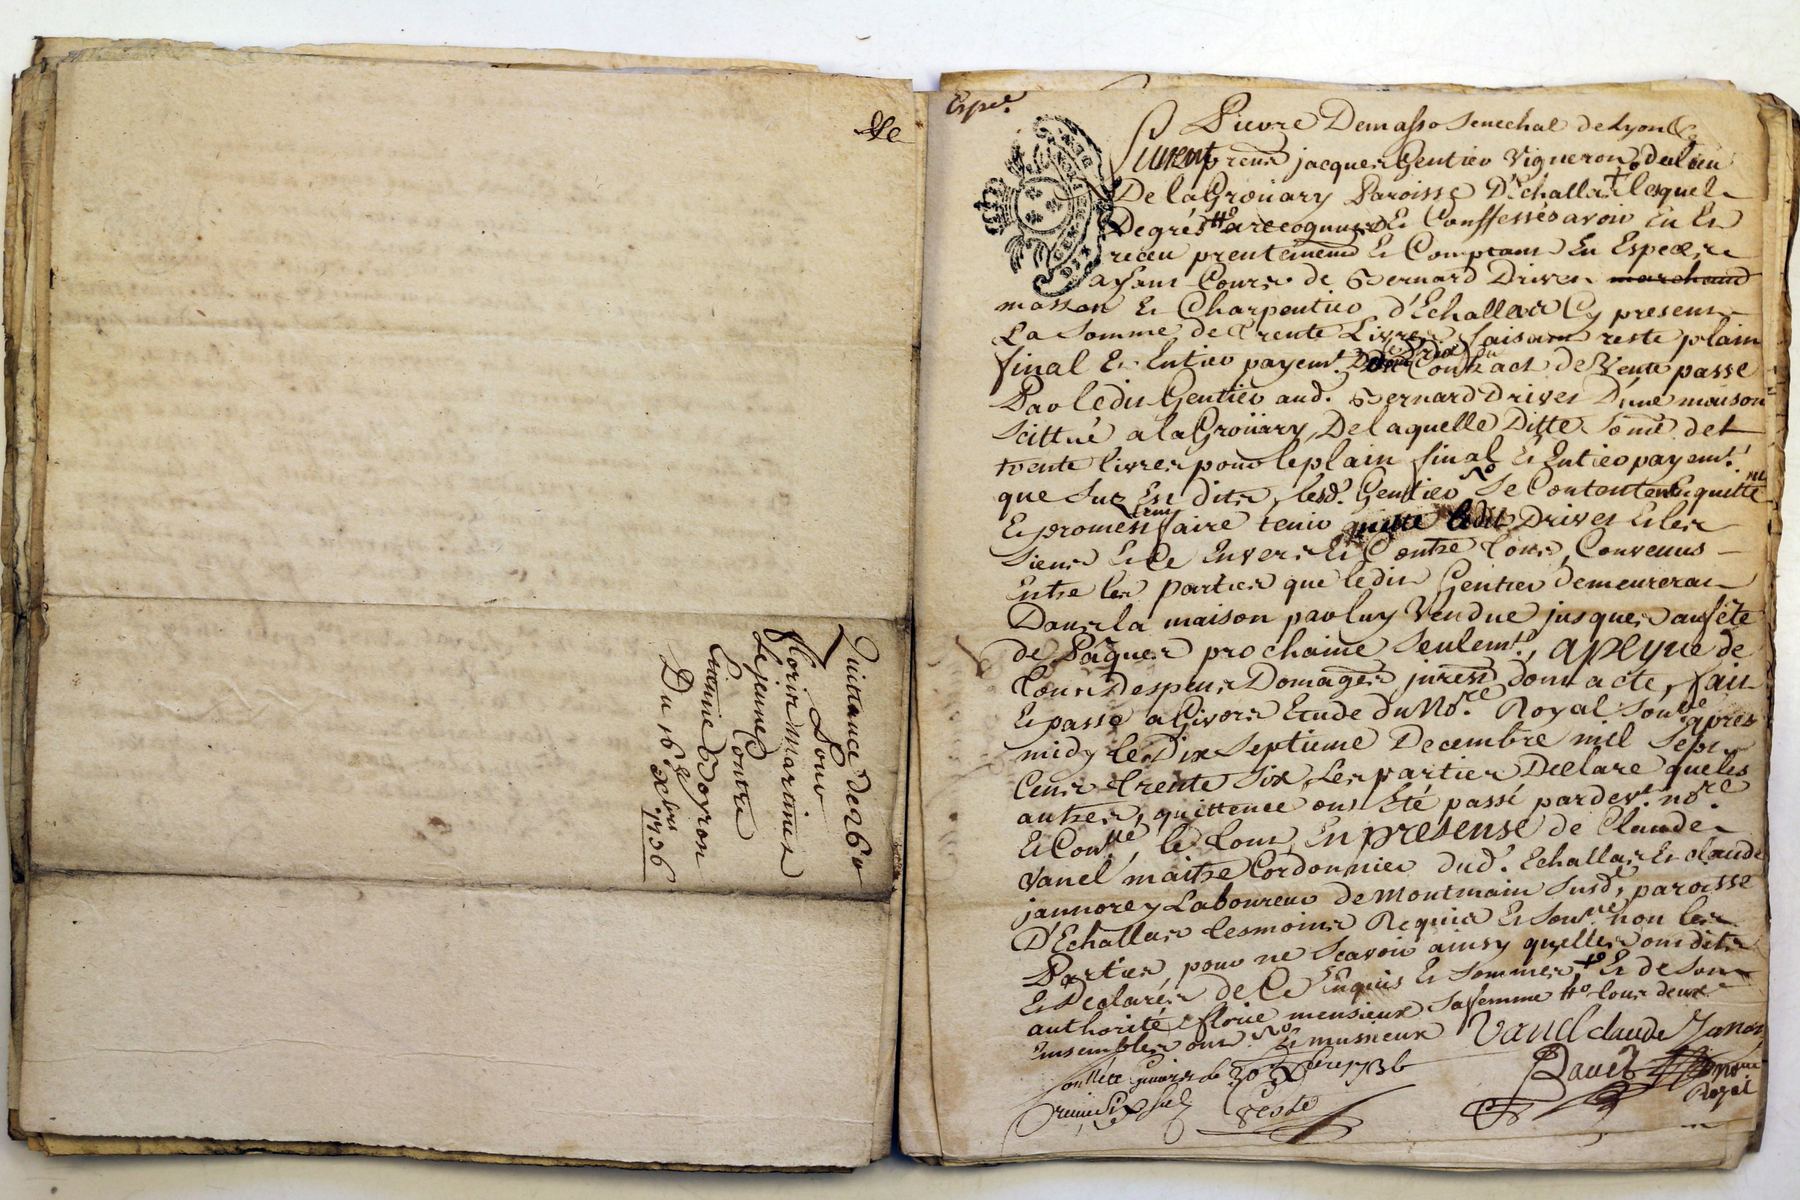 Quittance de 26 #
Pour
floris martinet
Lejeune
Contre
Etienne Boyron
Du 16e Xbre 1736
Expe.
Pierre Demasso Senechal de Lyon &c
furent prens jacques Gentier Vigneron du lieu
De la Groüary Paroisse D'Echallas + lesquel
Degrés # a recogneu Et Conffessé avoir Eu Et
receu prentement Et Comptant En Especes
ayant Cours de Bernard Drivet marchand
masson Et Charpentier d'Echallas Cy present
La Somme de Trente Livres faisant reste plain
final Et Entier payemt. du Contract de Vente passé
Par ledit Gentier aud. Bernard Drivet D'une maison
Scittué a la Groüary, De laquelle Ditte Somē de
trente livres pour le plain final Et Entier payemt.
que Sus Est dite, lesd. Gentier Se Contentent Enquitte
Et promest faire tenir quitte ledit Drivet Et les
Siens Et Ce Envers Et Contre tous, Convenus
Entre les parties que ledit Gentier demeurerat
Dans la maison par luy Vendue jusques au fête
de Pâques prochaine Seulemt., apeyne de
tous Despens Domages jntest dont acte, fait
Et passé a Givors Etude du No.re Royal Sous.é apres
midy le Dix Septieme Decembre mil Sept
Cent Trente Six Les parties Declare que les
autres quittence ont Eté passé pardevt. nore
Et Con.né le tout, En presense de Claude
Vanel maitre Cordonnier dud. Echallas Et claude
jannorey Laboureur de Montmain Susd. paroisse
D'Echallas tesmoins Requis Et Sous.né non les
Parties, pour ne Scavoir ainsy quelles ont dit
Et Declarés de Ce Enquis Et Sommes + Et de Son
authorité florie mensieux Sa femme # tous deux
Ensembles ont Et mussieux
Vanel claude Janorey
Con.llé Givors le 20 Xbre 1736
no.re Royal